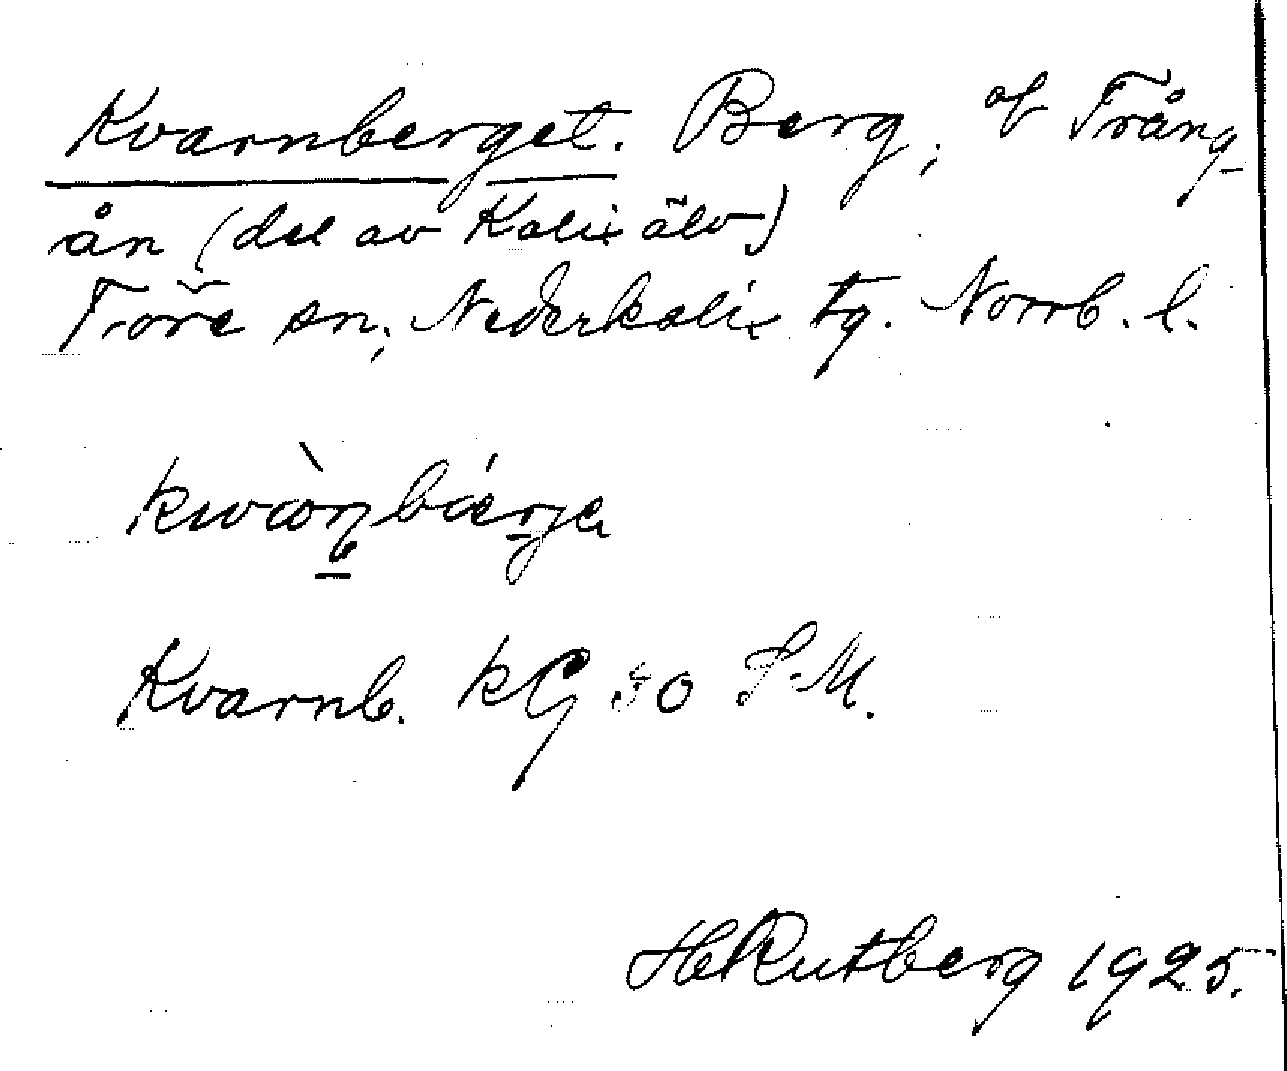 Kvarnberget. Berg, af Trång-
ån (del av Kalix älv)
Töre sn, Nederkalix tg. Norrb. l.
Kvarnb. kG 50 S.M.
H Rutberg 1925.